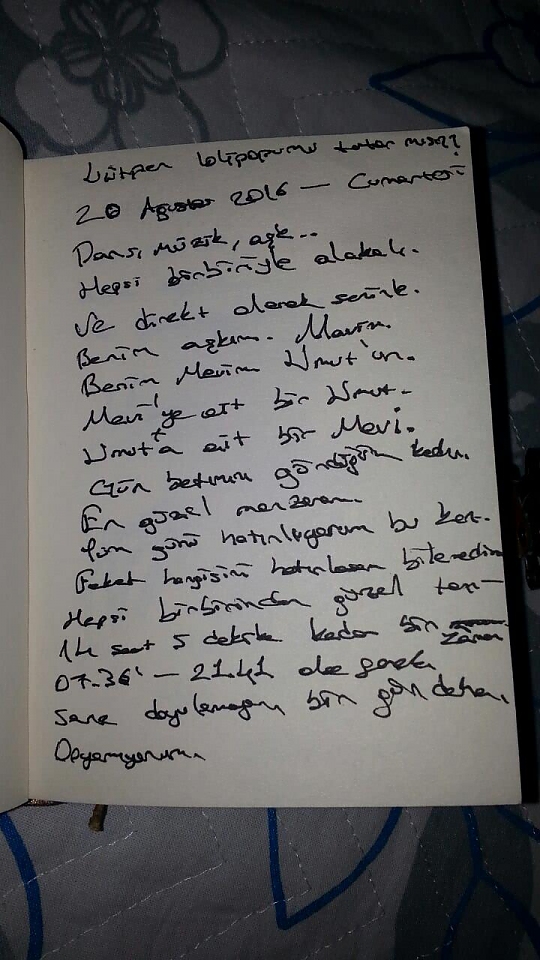 Lütfen lolipopumu tutar mısın?
20 Ağustos 2016 — Cumartesi
Dans, müzik, aşk...
Hepsi birbiriyle alakalı.
Ve direkt olarak seninle.
Benim aşkım. Mavim.
Benim Mavim Umut'un.
Mavi'ye ait bir Umut.
Umut'a ait bir Mavi.
Gün batımını gördüğüm kadın.
En güzel manzaram.
Tüm günü hatırlıyorum bu kez.
Fakat hangisini hatırlasam bilemedim
Hepsi birbirinden güzel tam
14 saat 5 dakika kadar bir zaman
07.36' — 21.41 olsa gerek.
Sana doyulamayan bir gün daha.
Doyamıyorum.